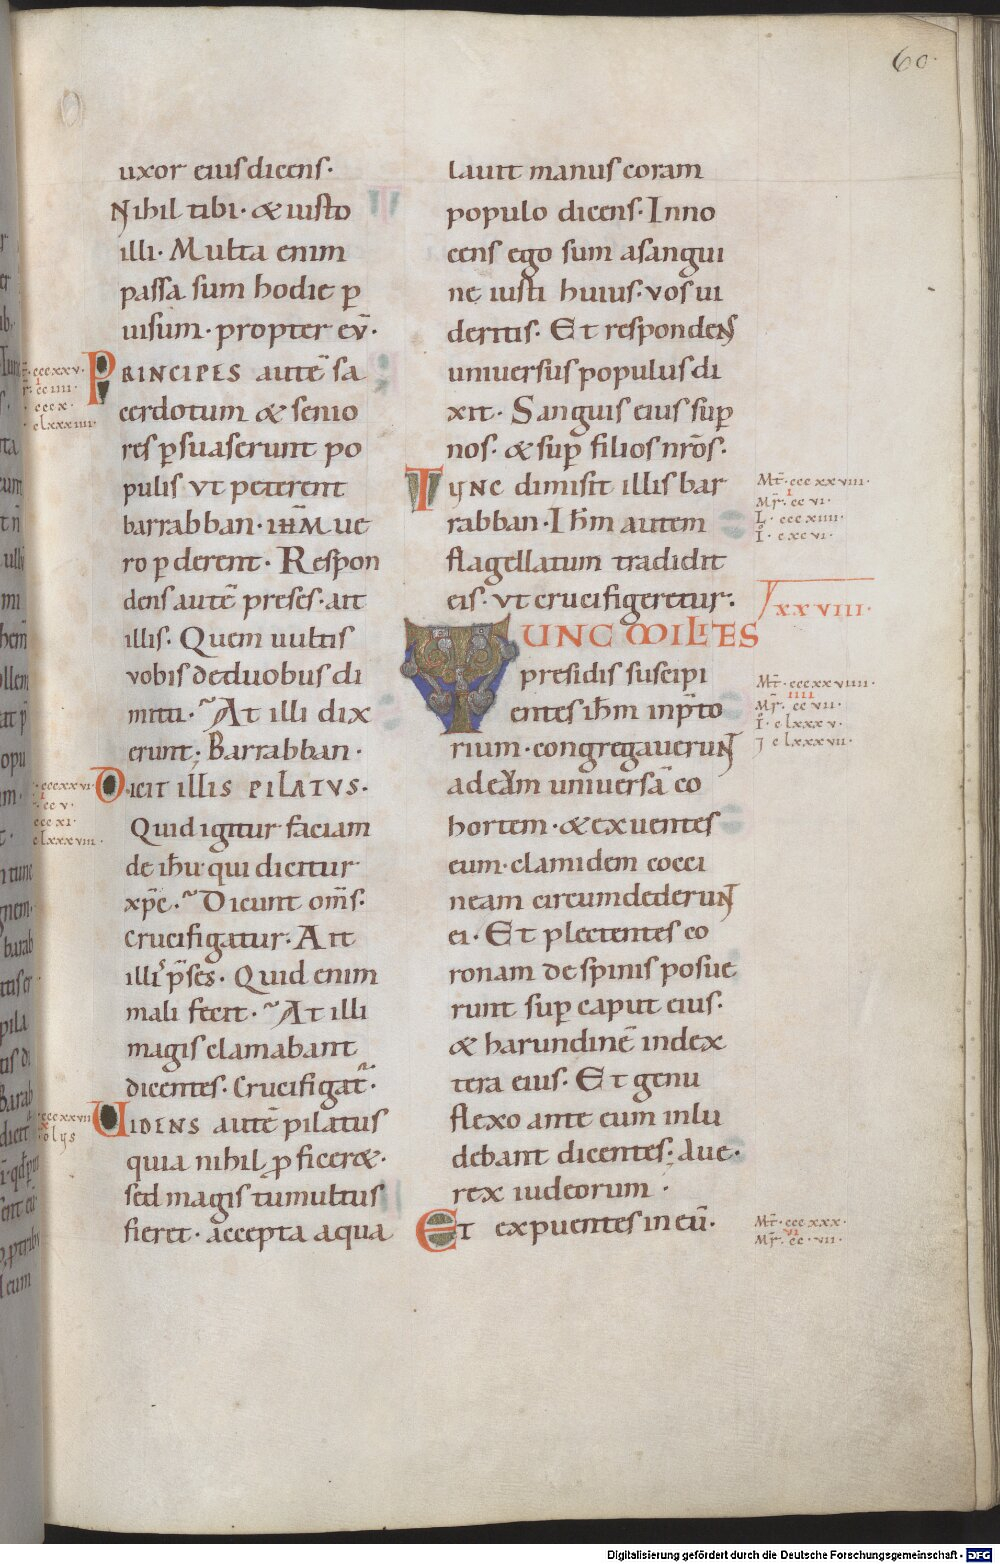 60
uxor eius dicens·
Nihil tibi· & iusto
illi· Multa enim
passa sum hodie p̲
uisum· propter eū·
PRINCIPES autē sa
cerdotum & senio
res p̲suaserunt po
pulis ut peterent
barrabban· iħm ue
ro p̲derent· Respon
dens autē preses· ait
illis· Quem uultis
vobis deduobus di
mitti· At illi dix
erunt; Barrabban·
Dicit illis PILATVS·
Quid igitur faciam
de iħu qui dicitur
xp̄c· Dicunt om̄s·
crucifigatur· Ait
illis p̄ses· Quid enim
mali fecit· At illi
magis clamabant
dicentes· Crucifigat̄·
UIDENS autē pilatus
quia nihil p̲ficer&·
sed magis tumultus
fieret· accepta aqua
lauit manus coram
populo dicens· Inno
cens ego sum asangui
nę iusti huius· vos ui
deritis· Et respondens
uniuersus populus di
xit· Sanguis eius sup̲
nos· & sup̲ filios nr̄os·
TUNC dimisit illis bar
rabban· Iħm autem
flagellatum tradidit
eis· ut crucifigeretur·
TUNC MILITES
presidis suscipi
entes iħm inp̄to
rium· congregauerunt
adeum uniuersā co
hortem· & exuentes
eum· clamidem cocci
neam circumdederunt
ei· Et plectentes co
ronam de spinis posue
runt sup̲ caput eius·
& harundinē index
tera eius· Et genu
flexo ante eum inlu
debant dicentes; Aue·
rex iudeorum·
Et expuentes in eū·
Mt̄· cccxxviii·
i
Mr̄· ccvi·
L· cccxiiii·
I· cxcvi·
xxviii·
Mt̄· cccxxviiii·
iiii
Mr̄· ccvii·
I· clxxxv·
I clxxxvii·
Mt̄· cccxxx·
vi
Mr̄· ccvii·
Digitalisierung gefördert durch die Deutsche Forschungsgemeinschaft - DFG